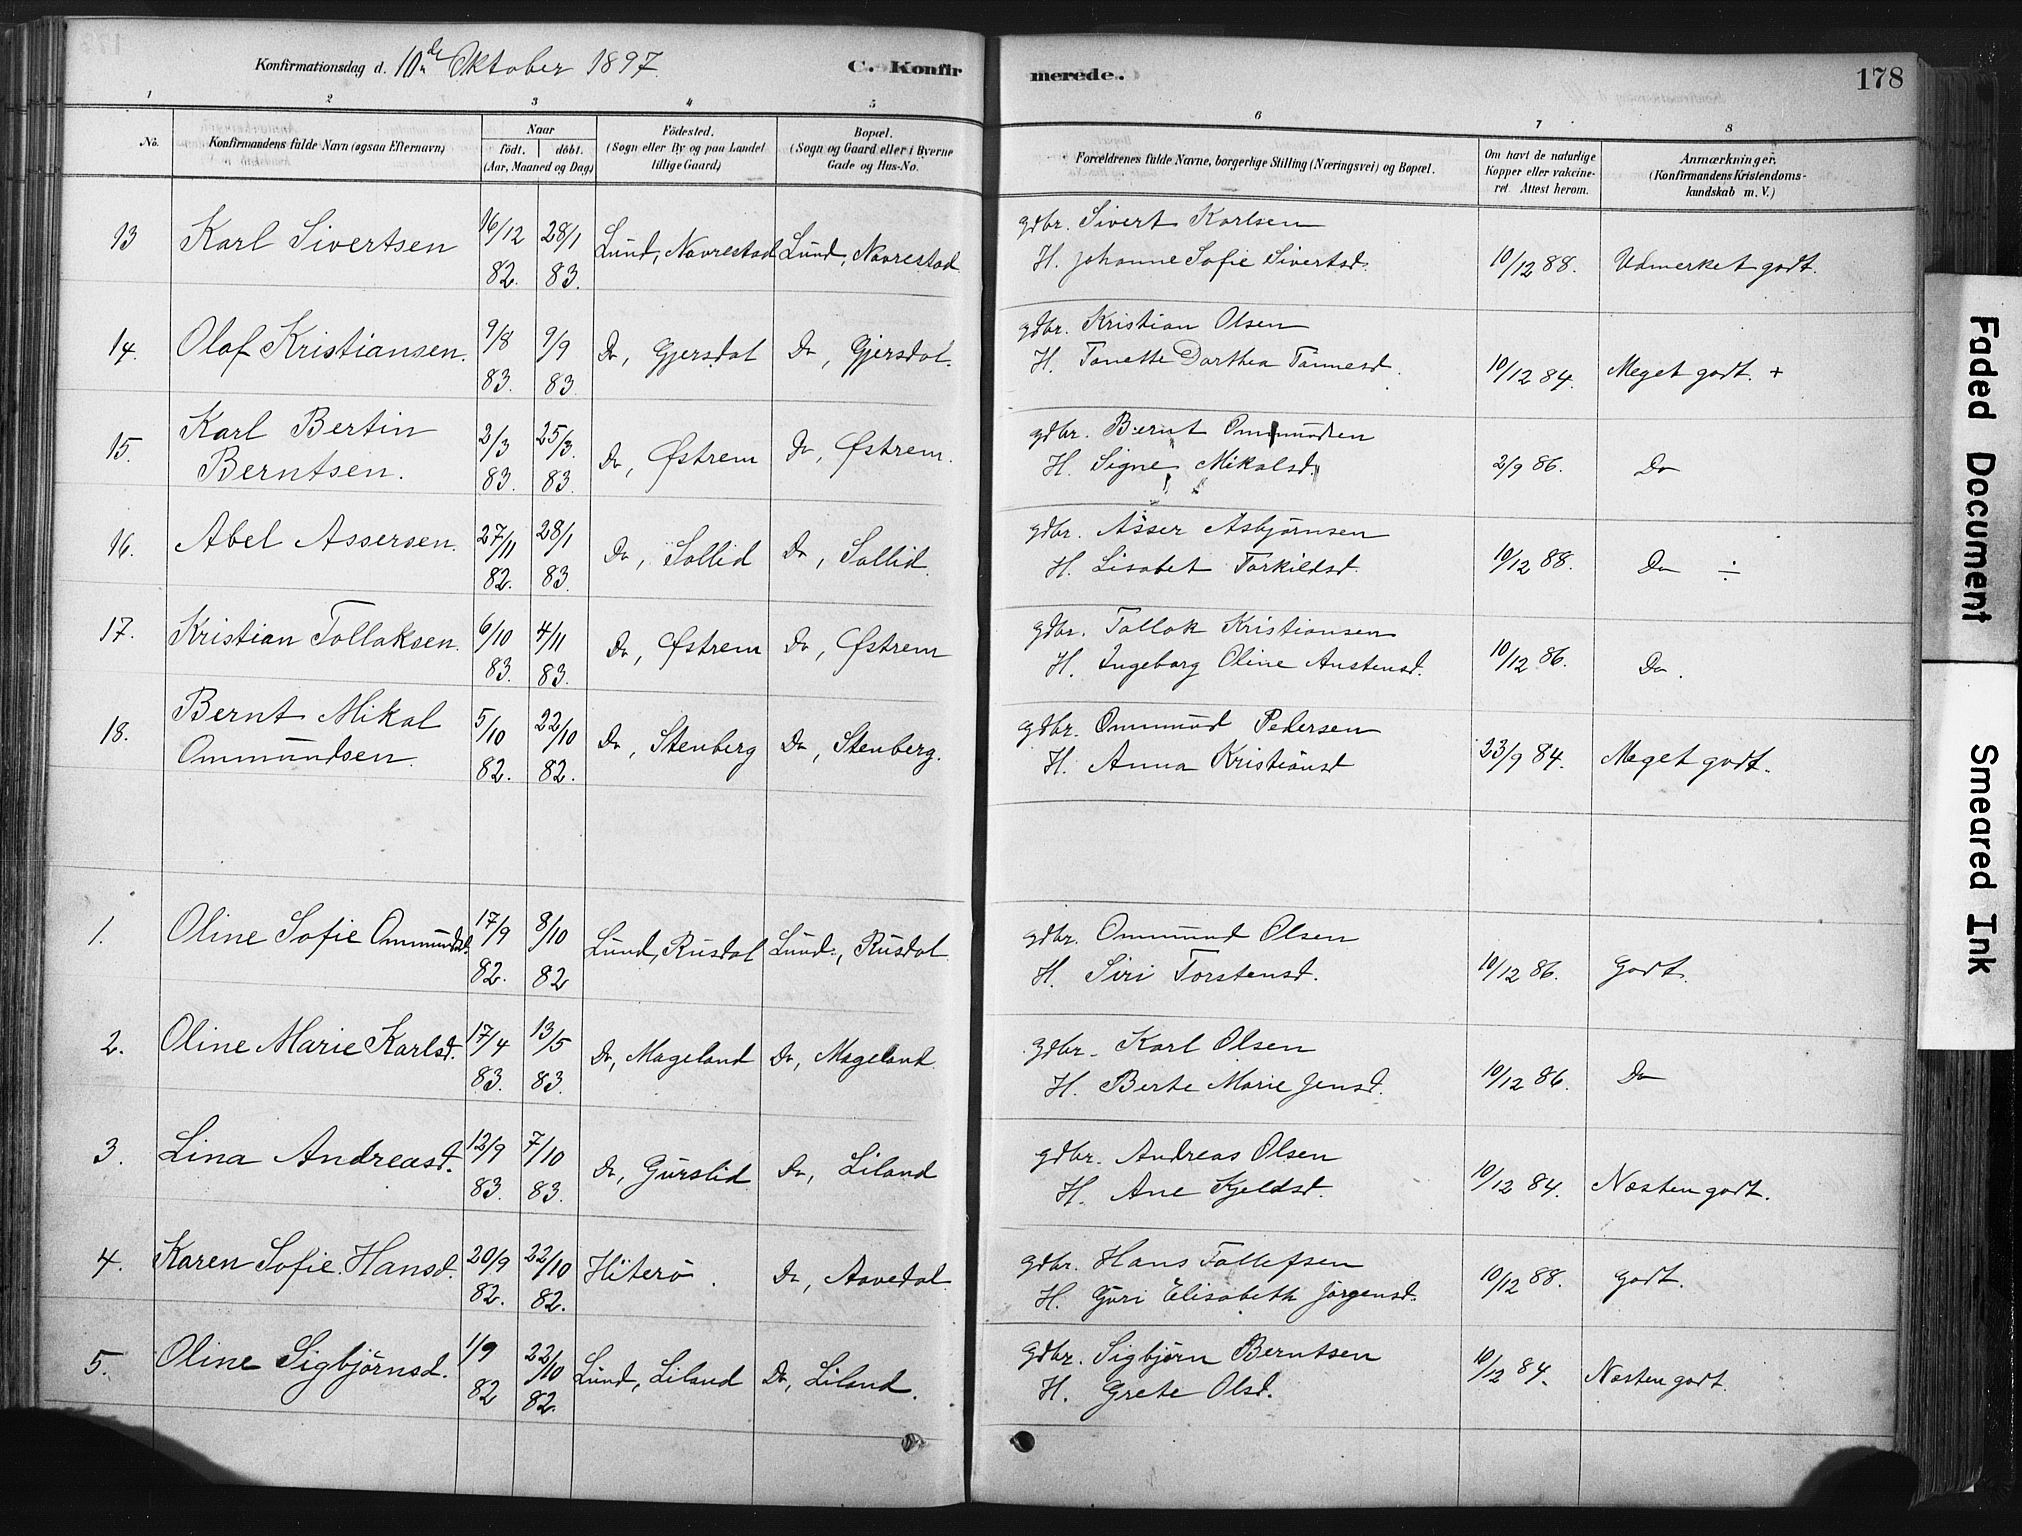 Konfirmationsdag d. 10de Oktober 1897.
C. Konfirmerede.
178
1 2 3 4 5 6 7 8
No.
Konfirmandens fulde Navn (ogsaa Efternavn)
Naar
födt. döbt.
(Aar, Maaned og Dag)
Födested.
(Sogn eller By og paa Landet
tillige Gaard)
Bopæl.
(Sogn og Gaard eller i Byerne
Gade og Hus-No.
Forældrenes fulde Navne, borgerlige Stilling (Næringsvei) og Bopæl.
Om havt de naturlige
Kopper eller vakcine-
ret. Attest herom.
Anmærkninger.
(Konfirmandens Kristendoms-
kundskab m. V.)
13 Karl Sivertsen 16/12 82. 28/1 83. Lund, Navrestad Lund, Navrestad
gdbr. Sivert Karlsen
H. Johanne Sofie Sivertsd. 10/12 88. Udmerket godt.
14. Olaf Kristiansen. 9/8 83. 9/9 83. Do, Gjersdal Do, Gjersdal.
gdbr. Kristian Olsen
H. Tonette Dorthea Tønnesd. 10/12 84. Meget godt. +
15. Karl Bertin
Berntsen. 2/3 83. 25/3 83. Do, Østrem Do, Østrem.
gdbr. Bernt Ommundsen
H. Signe Mikalsd. 2/9 86. Do
16. Abel Assersen. 27/11 82. 28/1 83. Do, Sollid Do, Sollid.
gdbr. Asser Asbjørnsen
H. Lisabet Torkildsd. 10/12 88. Do ÷
17. Kristian Tollaksen. 6/10 83. 4/11 83. Do, Østrem Do, Østrem
gdbr. Tollak Kristiansen
H. Ingeborg Oline Austensd. 10/12 86. Do.
18. Bernt Mikal
Ommundsen. 5/10 82. 22/10 82. Do, Stenberg Do, Stenberg.
gdbr. Ommund Pedersen
H. Anna Kristiansd 23/9 84. Meget godt.
1. Oline Sofie Ommundsd. 17/9 82. 8/10 82 Lund, Rusdal Lund, Rusdal
gdbr. Ommund Olsen
H. Siri Torstensd. 10/12 86. Godt.
2. Oline Marie Karlsd. 17/4 83. 13/5 83 Do, Mageland Do, Mageland.
gdbr. Karl Olsen
H. Berte Marie Jensd. 10/12 86. Do
3. Lina Andreasd. 12/9 83. 7/10 83. Do, Gurslid Do, Liland
gdbr. Andreas Olsen
H. Ane Kjeldsd. 10/12 84. Næsten godt.
4. Karen Sofie Hansd. 20/9 82. 22/10 82. Hiterö. Do, Aavedal.
gdbr. Hans Tollefsen
H. Guri Elisabeth Jørgensd. 10/12 88. Godt.
5. Oline Sigbjörnsd. 1/9 82 22/10 82. Lund, Liland Do, Liland.
gdbr. Sigbjørn Berntsen
H. Grete Olsd. 10/12 84. Næsten godt.
Faded Document
Smeared Ink